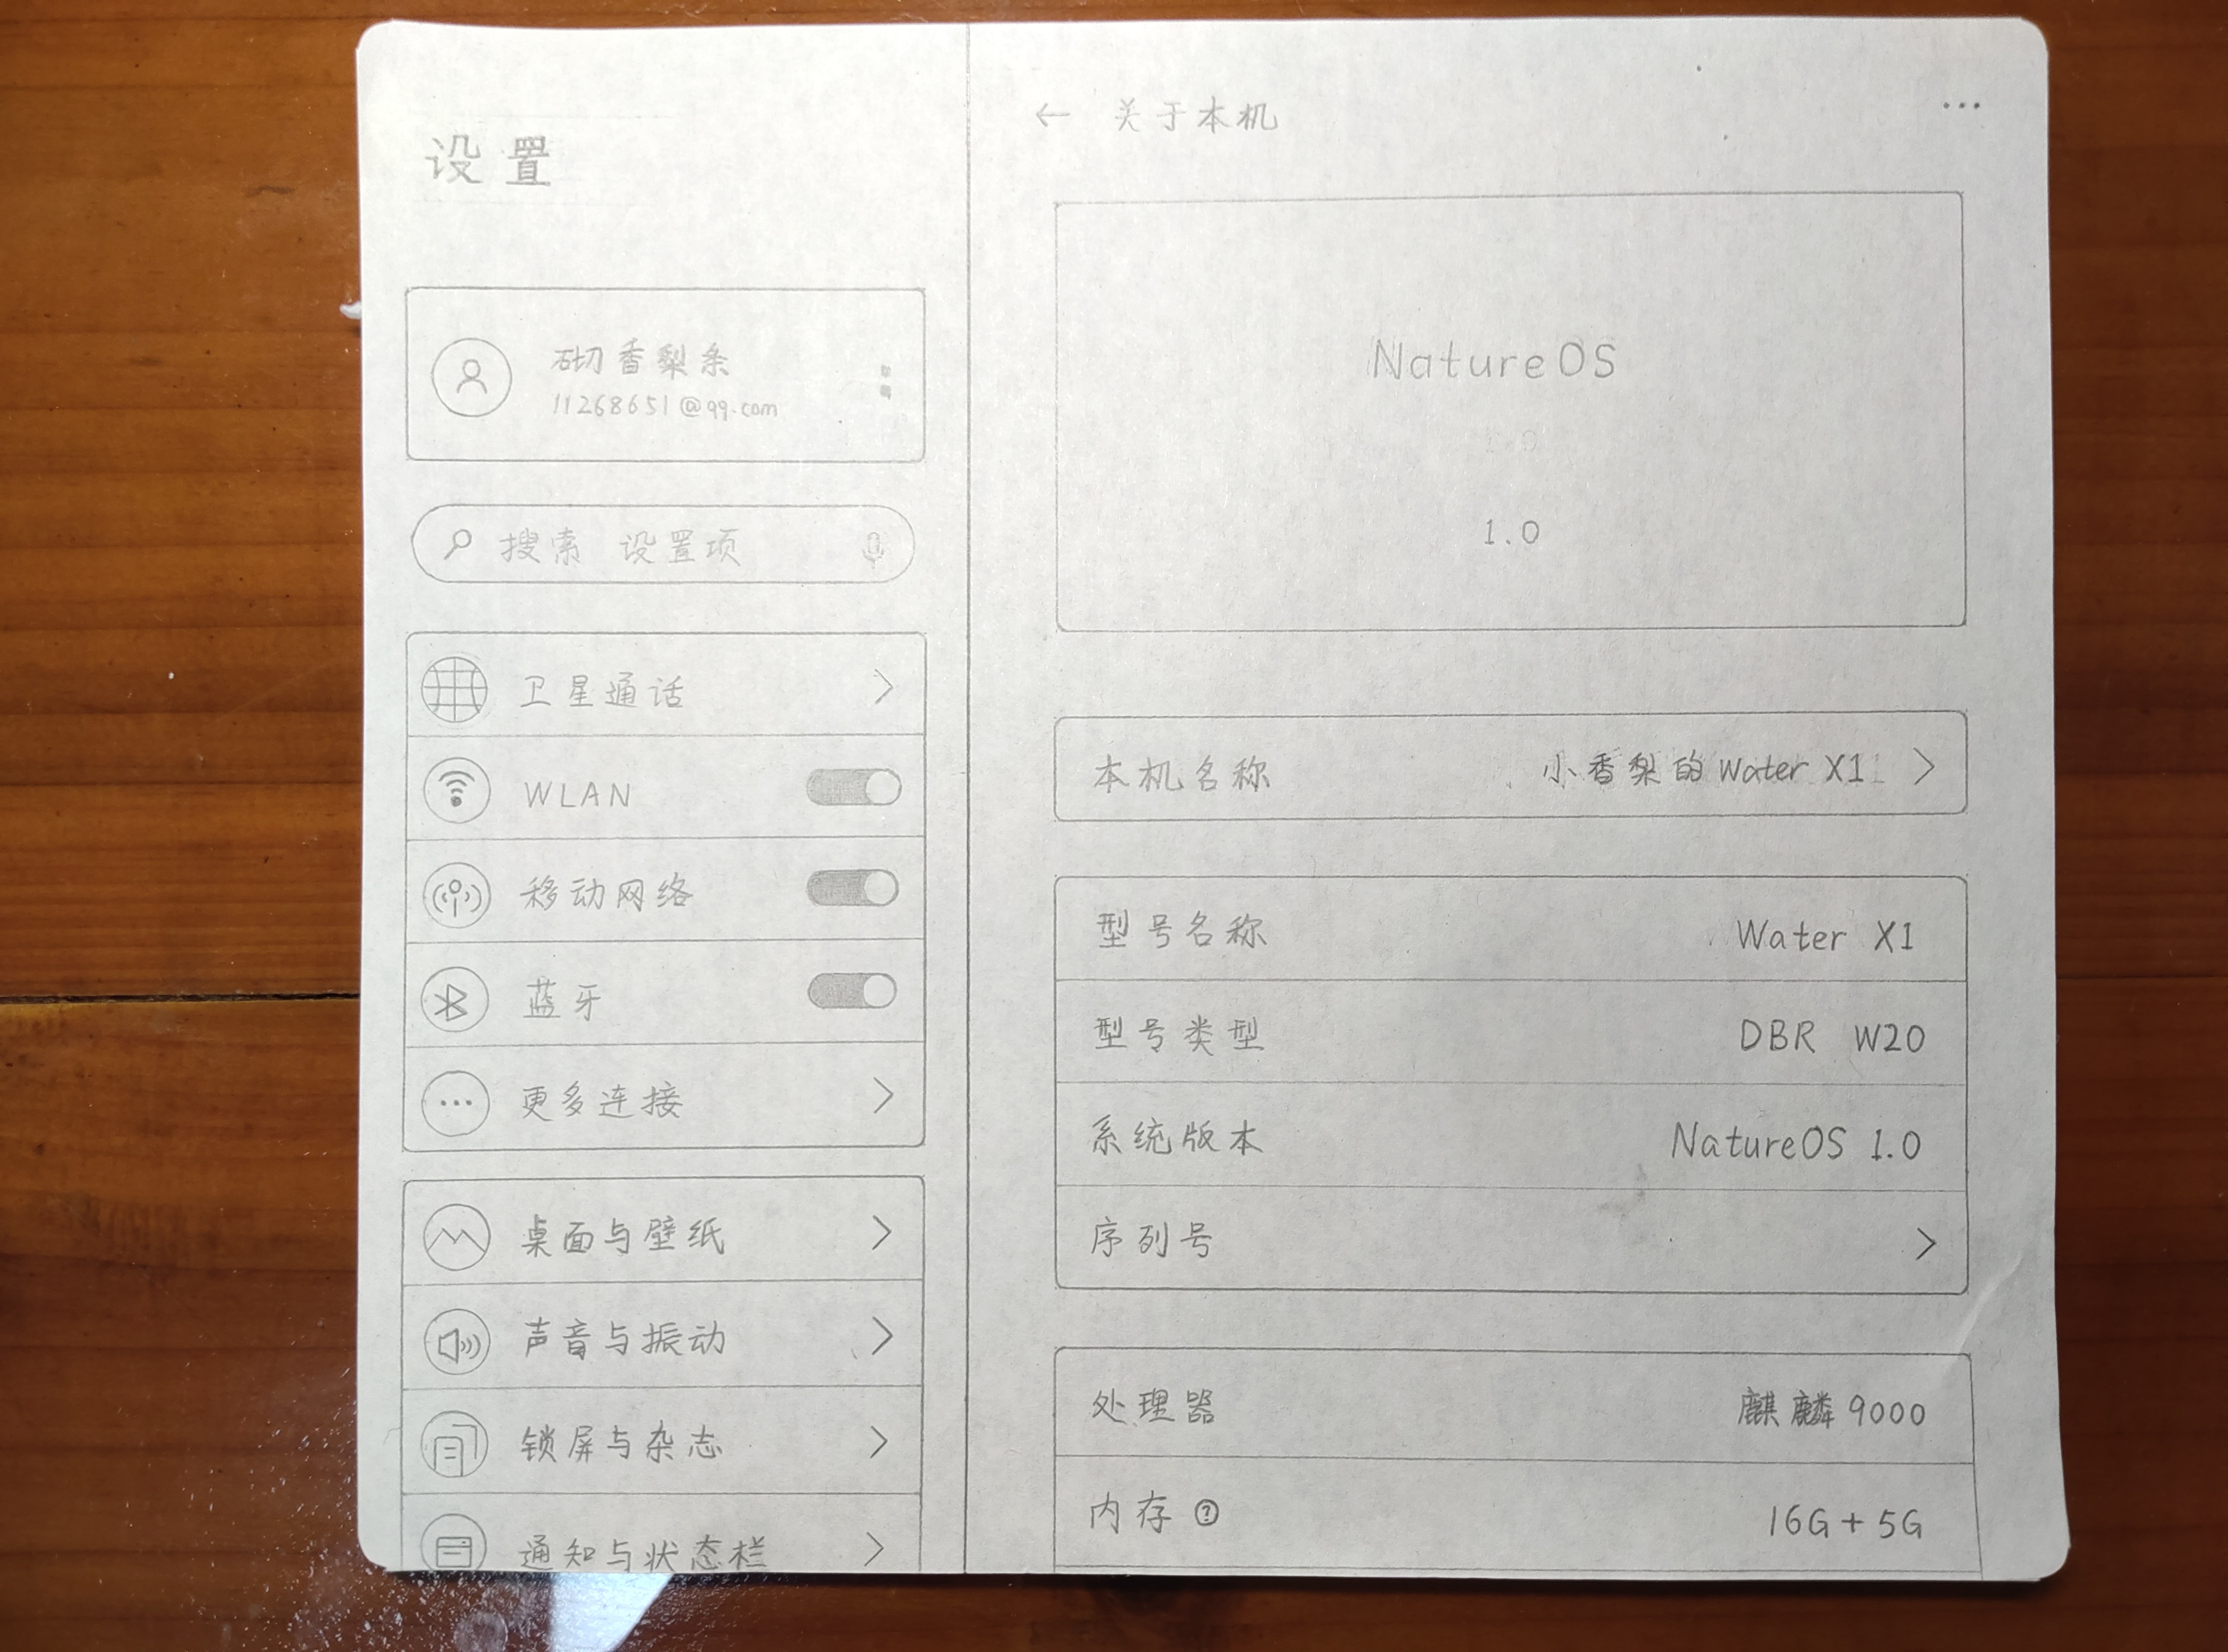 设置
砌香梨条
11268651@qq.com
搜索 设置项
卫星通话
WLAN
移动网络
蓝牙
更多连接
桌面与壁纸
声音与振动
锁屏与杂志
通知与状态栏
← 关于本机
NatureOS
1.0
本机名称 小香梨的Water X1
型号名称 Water X1
型号类型 DBR W20
系统版本 NatureOS 1.0
序列号
处理器 麒麟9000
内存 ? 16G+5G